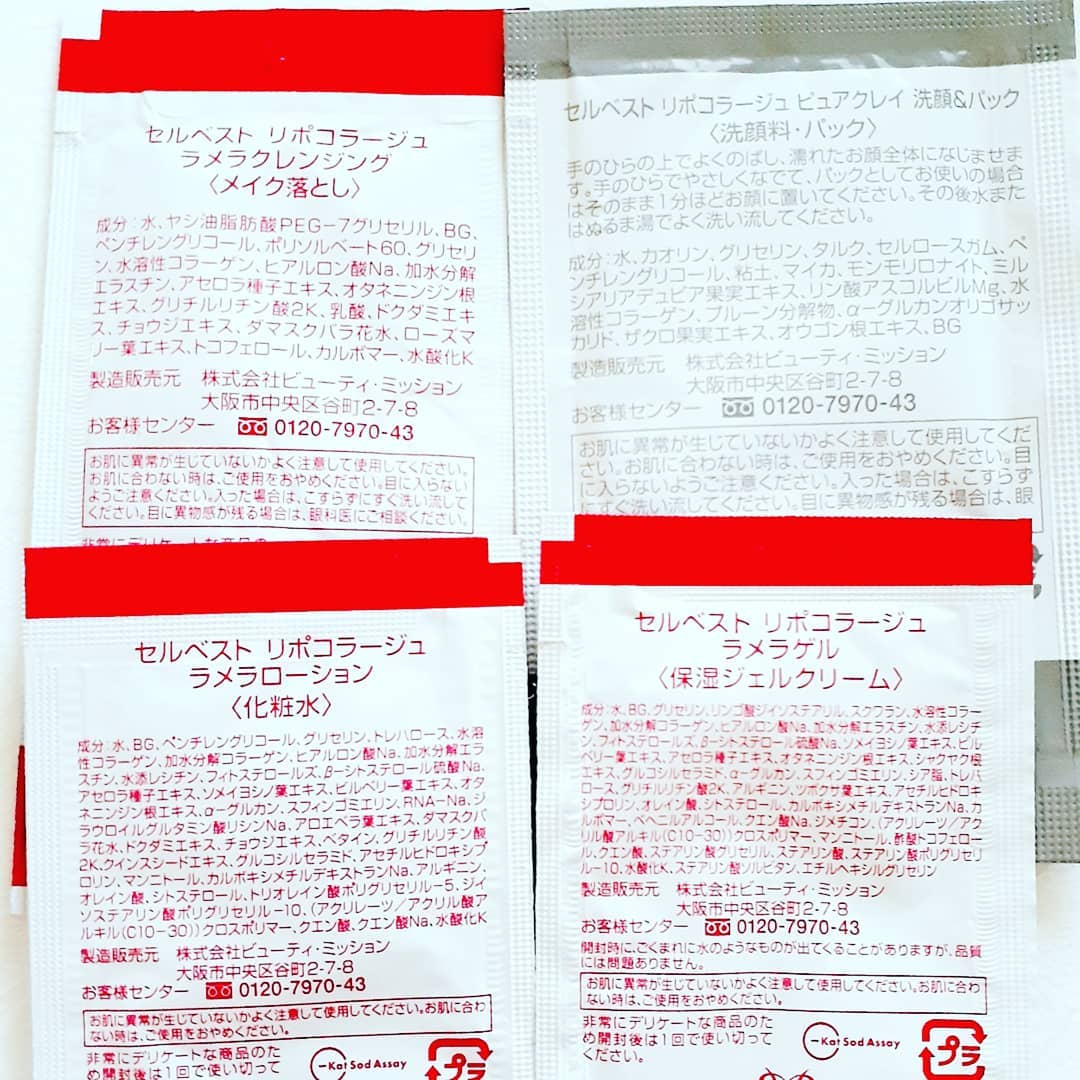 セルベスト リポコラージュ
ラメラクレンジング
〈メイク落とし〉
成分:水、ヤシ油脂肪酸PEG-7グリセリル、BG、
ペンチレングリコール、ポリソルベート60、グリセリ
ン、水溶性コラーゲン、ヒアルロン酸Na、加水分解
エラスチン、アセロラ種子エキス、オタネニンジン根
エキス、グリチルリチン酸2K、乳酸、ドクダミエキ
ス、チョウジエキス、ダマスクバラ花水、ローズマ
リー葉エキス、トコフェロール、カルボマー、水酸化K
製造販売元 株式会社ビューティ・ミッション
大阪市中央区谷町2-7-8
お客様センター 0120-7970-43
お肌に異常が生じていないかよく注意して使用してください。
お肌に合わない時は、ご使用をおやめください。目に入らない
ようご注意ください。入った場合は、こすらずにすぐ洗い流して
ください。目に異物感が残る場合は、眼科医にご相談ください。
非常にデリケートな商品の
セルベスト リポコラージュ ピュアクレイ 洗顔&パック
〈洗顔料・パック〉
手のひらの上でよくのばし、濡れたお顔全体になじませま
す。手のひらでやさしくなでて、パックとしてお使いの場合
はそのまま1分ほどお顔に置いてください。その後水また
はぬるま湯でよく洗い流してください。
成分:水、カオリン、グリセリン、タルク、セルロースガム、ペ
ンチレングリコール、粘土、マイカ、モンモリロナイト、ミル
シアリアデュビア果実エキス、リン酸アスコルビルMg、水
溶性コラーゲン、プルーン分解物、α-グルカンオリゴサッ
カリド、ザクロ果実エキス、オウゴン根エキス、BG
製造販売元 株式会社ビューティ・ミッション
大阪市中央区谷町2-7-8
お客様センター 0120-7970-43
お肌に異常が生じていないかよく注意して使用してくだ
さい。お肌に合わない時は、ご使用をおやめください。目
に入らないようご注意ください。入った場合は、こすらず
にすぐ洗い流してください。目に異物感が残る場合は、眼
セルベスト リポコラージュ
ラメラローション
〈化粧水〉
成分:水、BG、ペンチレングリコール、グリセリン、トレハロース、水溶
性コラーゲン、加水分解コラーゲン、ヒアルロン酸Na、加水分解エラ
スチン、水添レシチン、フィトステロールズ、β-シトステロール硫酸Na、
アセロラ種子エキス、ソメイヨシノ葉エキス、ビルベリー葉エキス、オタ
ネニンジン根エキス、α-グルカン、スフィンゴミエリン、RNA-Na、ジ
ラウロイルグルタミン酸リシンNa、アロエベラ葉エキス、ダマスクバ
ラ花水、ドクダミエキス、チョウジエキス、ベタイン、グリチルリチン酸
2K、クインスシードエキス、グルコシルセラミド、アセチルヒドロキシプ
ロリン、マンニトール、カルボキシメチルデキストランNa、アルギニン、
オレイン酸、シトステロール、トリオレイン酸ポリグリセリル-5、ジイ
ソステアリン酸ポリグリセリル-10、(アクリレーツ/アクリル酸ア
ルキル(C10-30))クロスポリマー、クエン酸、クエン酸Na、水酸化K
製造販売元 株式会社ビューティ・ミッション
大阪市中央区谷町2-7-8
お客様センター 0120-7970-43
お肌に異常が生じていないかよく注意して使用してください。お肌に合わ
ない時は、ご使用をおやめください。
非常にデリケートな商品のた
め開封後は1回で使い切って
Kat Sod Assay
プラ
セルベスト リポコラージュ
ラメラゲル
〈保湿ジェルクリーム〉
成分:水、BG、グリセリン、リンゴ酸ジイソステアリル、スクワラン、水溶性コラー
ゲン、加水分解コラーゲン、ヒアルロン酸Na、加水分解エラスチン、水添レシチ
ン、フィトステロールズ、β-シトステロール硫酸Na、ソメイヨシノ葉エキス、ビル
ベリー葉エキス、アセロラ種子エキス、オタネニンジン根エキス、シャクヤク根
エキス、グルコシルセラミド、α-グルカン、スフィンゴミエリン、シア脂、トレハ
ロース、グリチルリチン酸2K、アルギニン、ツボクサ葉エキス、アセチルヒドロキ
シプロリン、オレイン酸、シトステロール、カルボキシメチルデキストランNa、カ
ルボマー、ベヘニルアルコール、クエン酸Na、ジメチコン、(アクリレーツ/アク
リル酸アルキル(C10-30))クロスポリマー、マンニトール、酢酸トコフェロー
ル、クエン酸、ステアリン酸グリセリル、ステアリン酸、ステアリン酸ポリグリセリ
ル-10、水酸化K、ステアリン酸ソルビタン、エチルヘキシルグリセリン
製造販売元 株式会社ビューティ・ミッション
大阪市中央区谷町2-7-8
お客様センター 0120-7970-43
開封時に、ごくまれに水のようなものが出てくることがありますが、品質
には問題ありません。
お肌に異常が生じていないかよく注意して使用してください。お肌に合わ
ない時は、ご使用をおやめください。
非常にデリケートな商品のた
め開封後は1回で使い切って
ください。
Kat Sod Assay
プラ